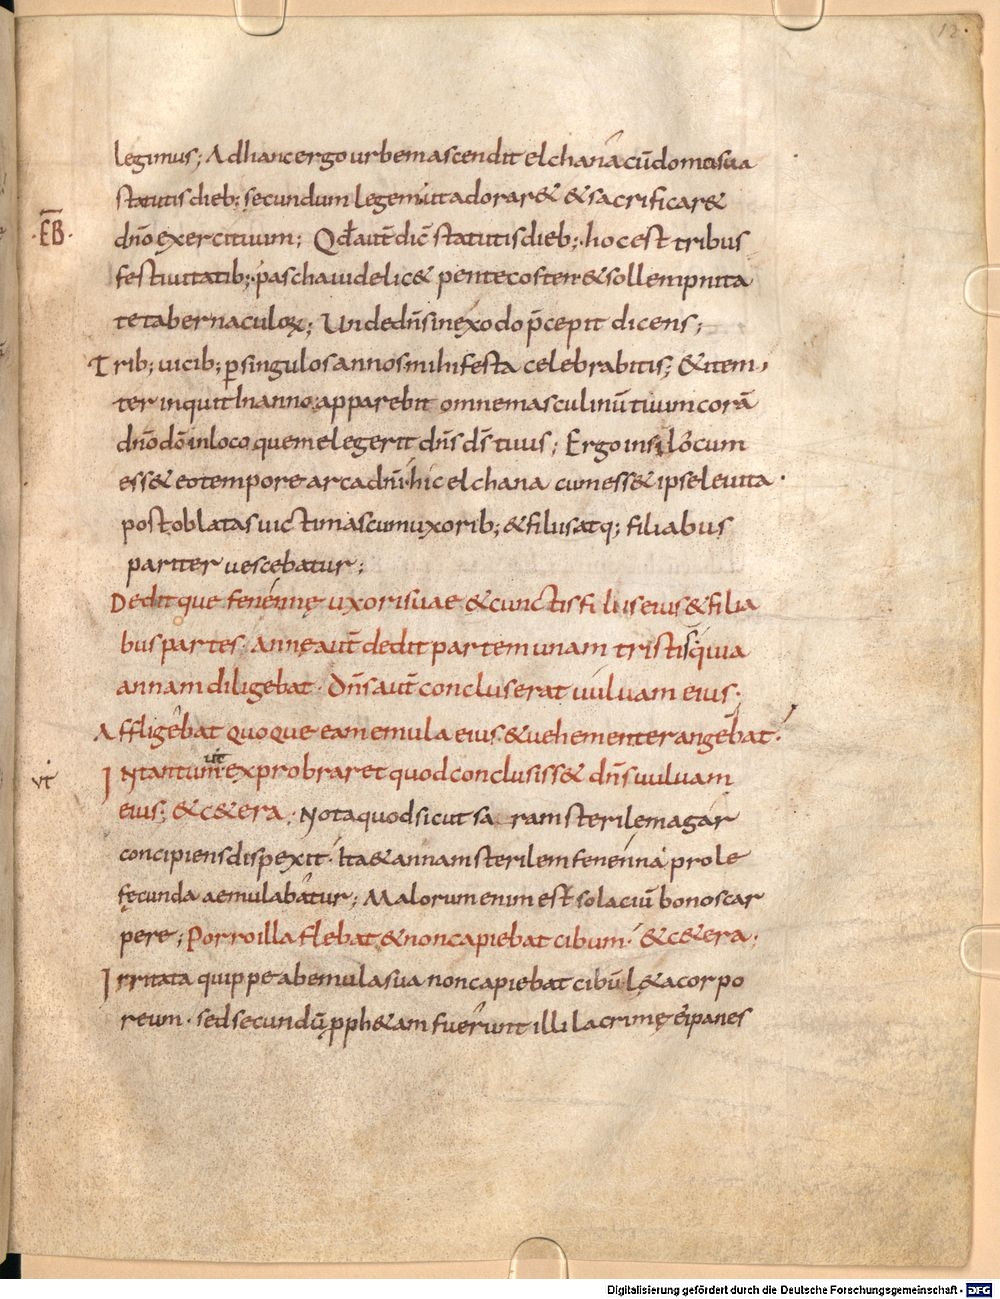 12.
legimus; Adhanc ergo urbem ascendit elchana cū domusua
statutis dieb; secundum legem ut adorar& & sacrificar&
·EB̅· dn̄o exercituum; Qd̄ aut̄ dic̄ statutis dieb;· hoc est tribus
festiuitatib;· pascha uidelic& pentecosten & sollempnita
te tabernaculoꝝ; Unde dn̄s in exodo p̄cepit dicens;
Trib; uicib; ꝑ singulos annos mihi festa celebrabitis; & item,
ter inquit In anno apparebit omne masculinū tuum corā
dn̄o dō in loco quem elegerit dn̄s ds̄ tuus; Ergo in silo cum
ess& eo tempore arca dn̄i· hic elchana cum ess& ipse leuita·
post oblatas uictimas cum uxorib; & filiis atq; filiabus
pariter uescebatur;
Deditque fenennę uxori suae & cunctis filiis eius & filia
bus partes· Annę aut̄ dedit partem unam tristis quia
annam diligebat· Dn̄s aut̄ concluserat uuluam eius;
Affligebat quoque eam emula eius & uehementer angebat·
ut Intantum ut exprobraret quod conclusiss& dn̄s uuluam
eius; & c&era· Nota quod sicut sa ram sterilem agar
concipiens dispexit· Ita & annam sterilem fenenna prole
fęcunda aemulabatur; Malorum enim est solaciū bonos car
pere; Porro illa flebat & non capiebat cibum· & c&era;
Irritata quippe ab emula sua non capiebat cibū l&a corpo
reum· sed secundū pph&am fuerunt illi lacrimę ei panes
Digitalisierung gefördert durch die Deutsche Forschungsgemeinschaft - DFG